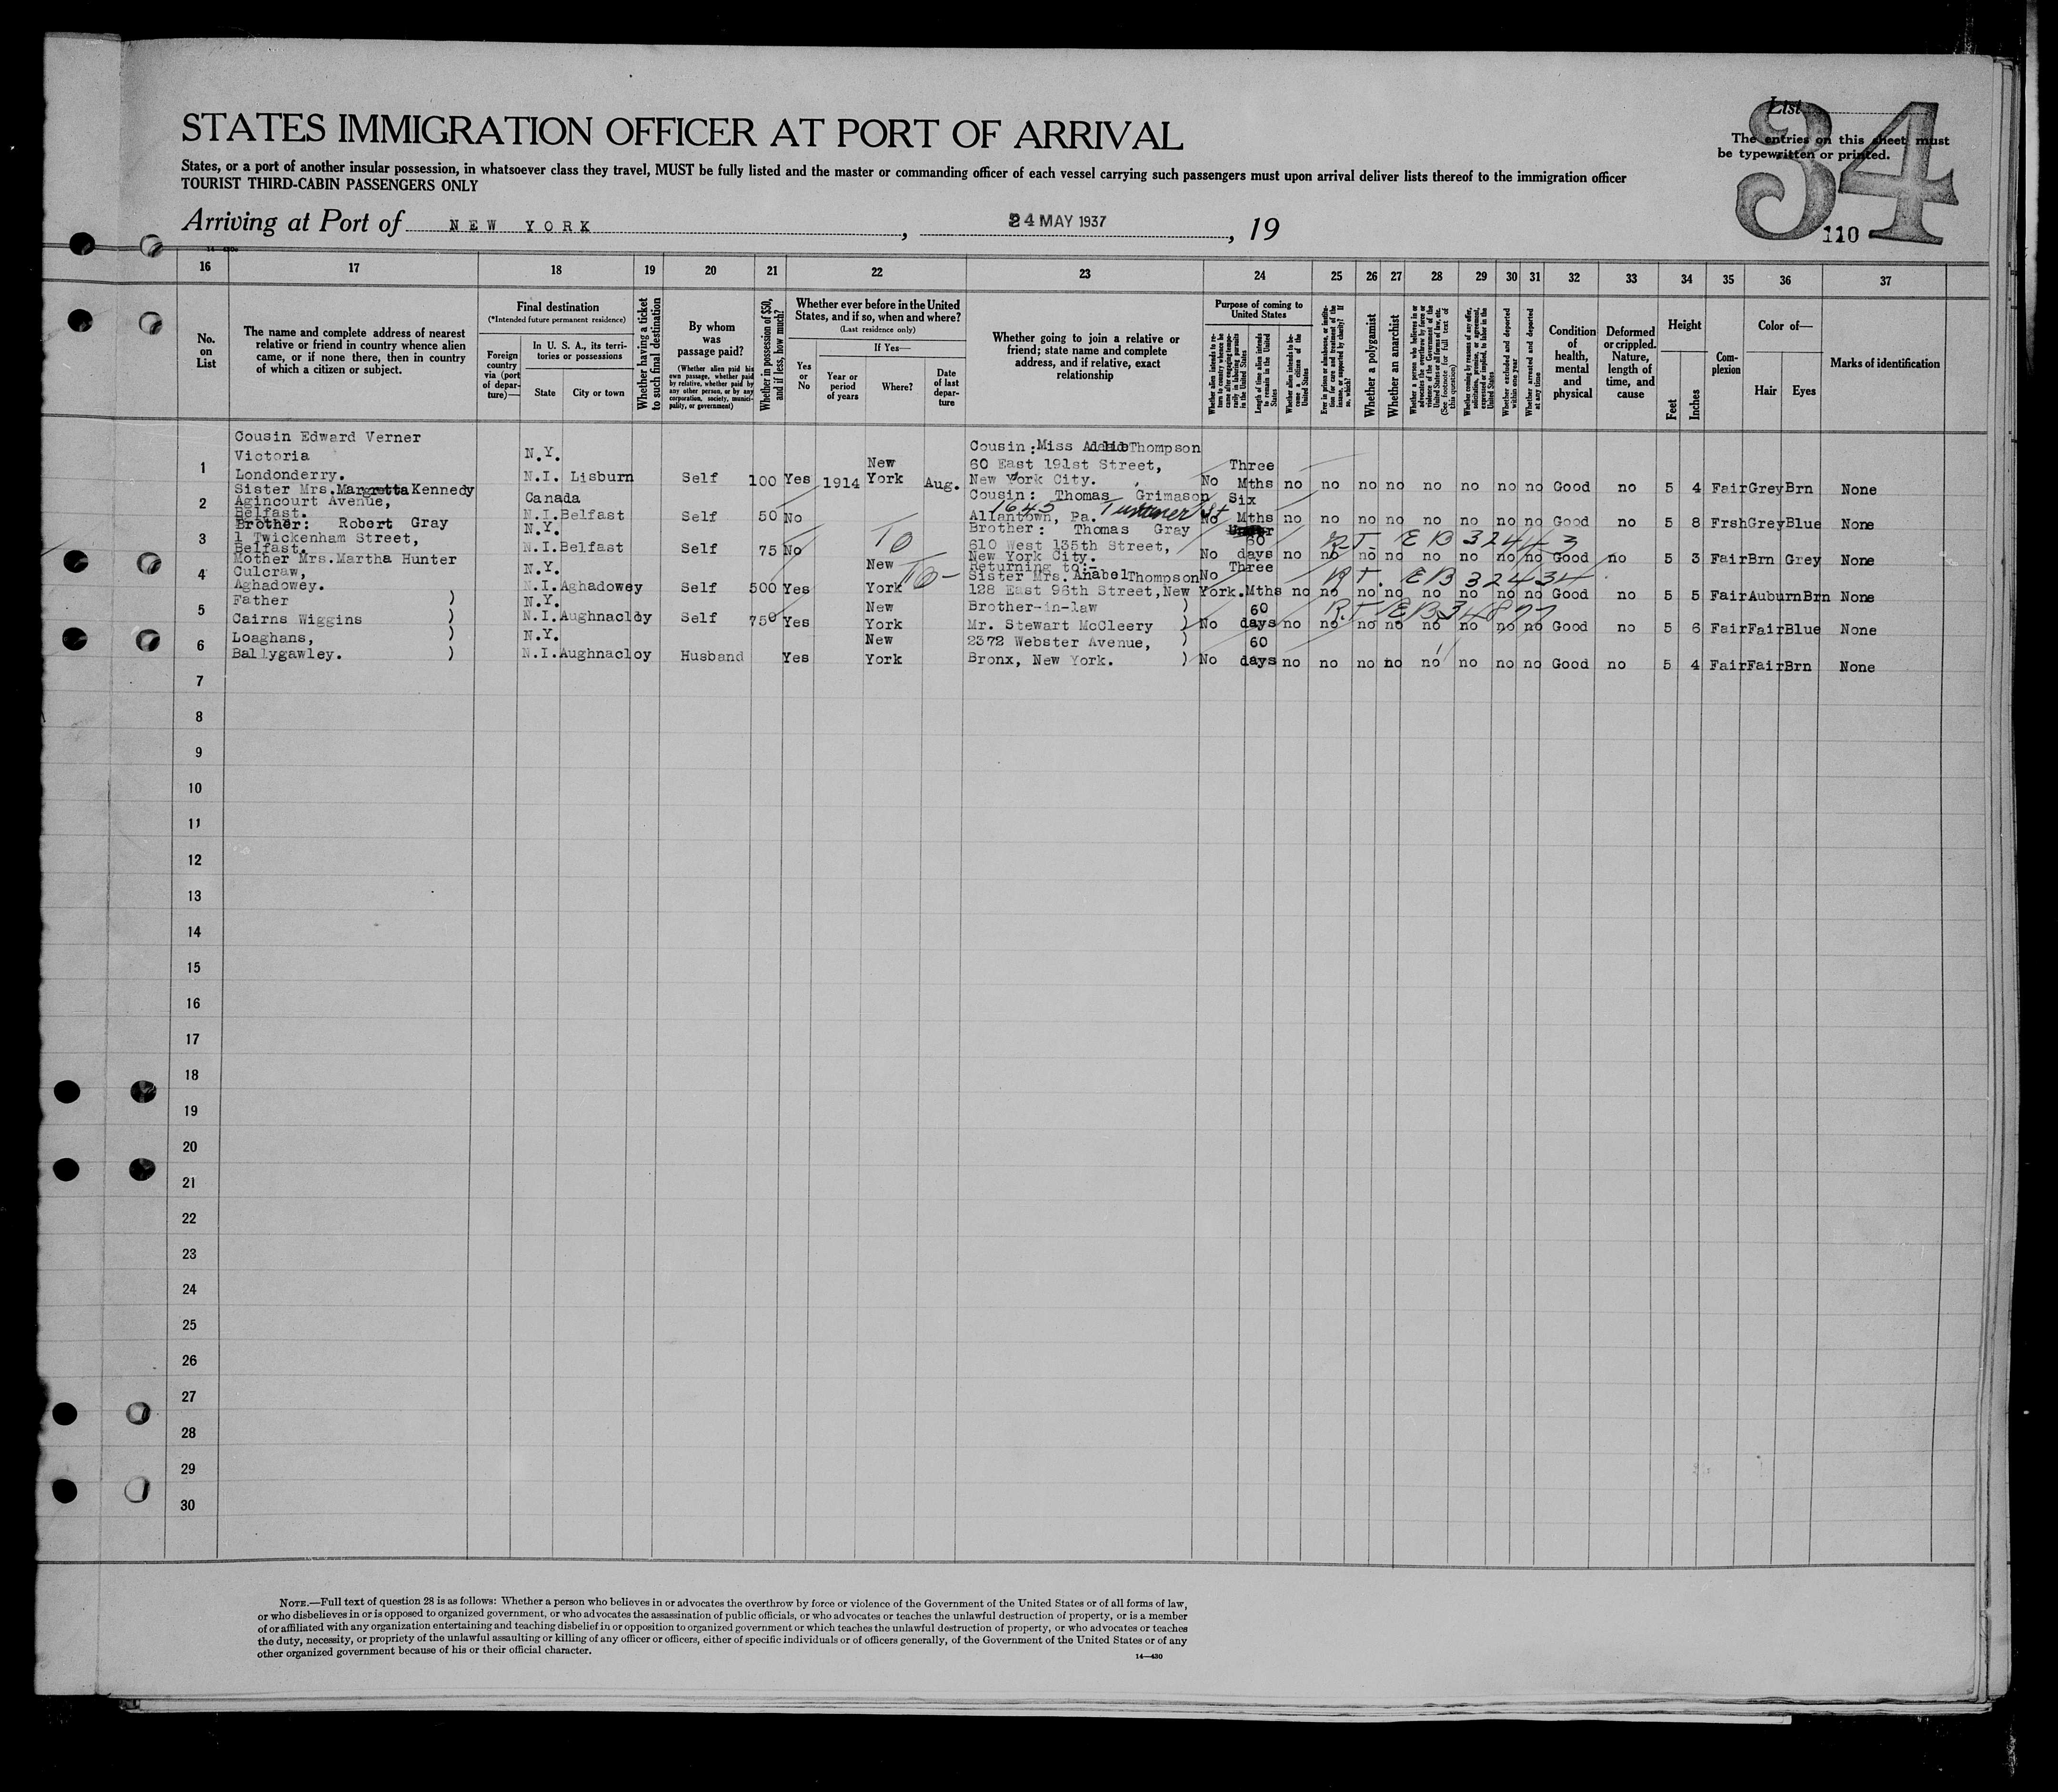 List
34
STATES IMMIGRATION OFFICER AT PORT OF ARRIVAL
The entries on this sheet must
be typewritten or printed.
States, or a port of another insular possession, in whatsoever class they travel, MUST be fully listed and the master or commanding officer of each vessel carrying such passengers must upon arrival deliver lists thereof to the immigration officer
TOURIST THIRD-CABIN PASSENGERS ONLY
Arriving at Port of NEW YORK, 24 MAY 1937, 19
110
16 17 18 19 20 21 22 23 24 25 26 27 28 29 30 31 32 33 34 35 36 37
No. on List
The name and complete address of nearest relative or friend in country whence alien came, or if none there, then in country of which a citizen or subject.
Final destination
(*Intended future permanent residence)
Foreign country via (port of departure)—
In U. S. A., its territories or possessions
State
City or town
Whether having a ticket to such final destination
By whom was passage paid?
(Whether alien paid his own passage, whether paid by relative, whether paid by any other person, or by any corporation, society, municipality, or government)
Whether in possession of $50, and if less, how much?
Whether ever before in the United States, and if so, when and where?
(Last residence only)
Yes or No
If Yes—
Year or period of years
Where?
Date of last departure
Whether going to join a relative or friend; state name and complete address, and if relative, exact relationship
Purpose of coming to United States
Whether alien intends to return to country whence he came after engaging temporarily in laboring pursuits in the United States
Length of time alien intends to remain in the United States
Whether alien intends to become a citizen of the United States
Ever in prison or almshouse, or institution for care and treatment of the insane, or supported by charity? If so, which?
Whether a polygamist
Whether an anarchist
Whether a person who believes in or advocates the overthrow by force or violence of the Government of the United States or all forms of law, etc. (See footnote for full text of this question)
Whether coming by reasons of any offer, solicitation, promise, or agreement, expressed or implied, to labor in the United States
Whether excluded and deported within one year
Whether arrested and deported at any time
Condition of health, mental and physical
Deformed or crippled. Nature, length of time, and cause
Height
Feet
Inches
Complexion
Color of—
Hair
Eyes
Marks of identification
1 Cousin Edward Verner
Victoria
Londonderry.
N.Y.
N.I. Lisburn Self 100 Yes 1914 New York Aug.
Cousin: Miss Thompson
60 East 191st Street,
New York City.
No Three Mths no no no no no no no no Good no 5 4 Fair Grey Brn None
2 Sister Mrs. Margretta Kennedy
Agincourt Avenue,
Belfast.
Canada
N.I. Belfast Self 50 No
Cousin: Thomas Grimason
1645 St
Allantown, Pa.
No Six Mths no no no no no no no no Good no 5 8 Frsh Grey Blue None
3 Brother: Robert Gray
1 Twickenham Street,
Belfast.
N.Y.
N.I. Belfast Self 75 No TO
Brother: Thomas Gray
610 West 135th Street,
New York City.
No 60 days no no no no no no no no Good no 5 3 Fair Brn Grey None
R.T. EB 324443
4 Mother Mrs. Martha Hunter
Culcraw,
Aghadowey.
N.Y.
N.I. Aghadowey Self 500 Yes New York TO-
Returning to:-
Sister Mrs. Anabel Thompson
128 East 96th Street, New York.
No Three Mths no no no no no no no no Good no 5 5 Fair Auburn Brn None
R.T. EB 322434
5 Father )
Cairns Wiggins )
N.Y.
N.I. Aughnacloy Self 750 Yes New York
Brother-in-law )
Mr. Stewart McCleery )
No 60 days no no no no no no no no Good no 5 6 Fair Fair Blue None
R.T. EB 34877
6 Loaghans, )
Ballygawley. )
N.Y.
N.I. Aughnacloy Husband Yes New York
2372 Webster Avenue, )
Bronx, New York. )
No 60 days no no no no no no no no Good no 5 4 Fair Fair Brn None
7
8
9
10
11
12
13
14
15
16
17
18
19
20
21
22
23
24
25
26
27
28
29
30
NOTE.—Full text of question 28 is as follows: Whether a person who believes in or advocates the overthrow by force or violence of the Government of the United States or of all forms of law,
or who disbelieves in or is opposed to organized government, or who advocates the assassination of public officials, or who advocates or teaches the unlawful destruction of property, or is a member
of or affiliated with any organization entertaining and teaching disbelief in or opposition to organized government or which teaches the unlawful destruction of property, or who advocates or teaches
the duty, necessity, or propriety of the unlawful assaulting or killing of any officer or officers, either of specific individuals or of officers generally, of the Government of the United States or of any
other organized government because of his or their official character.
14—430